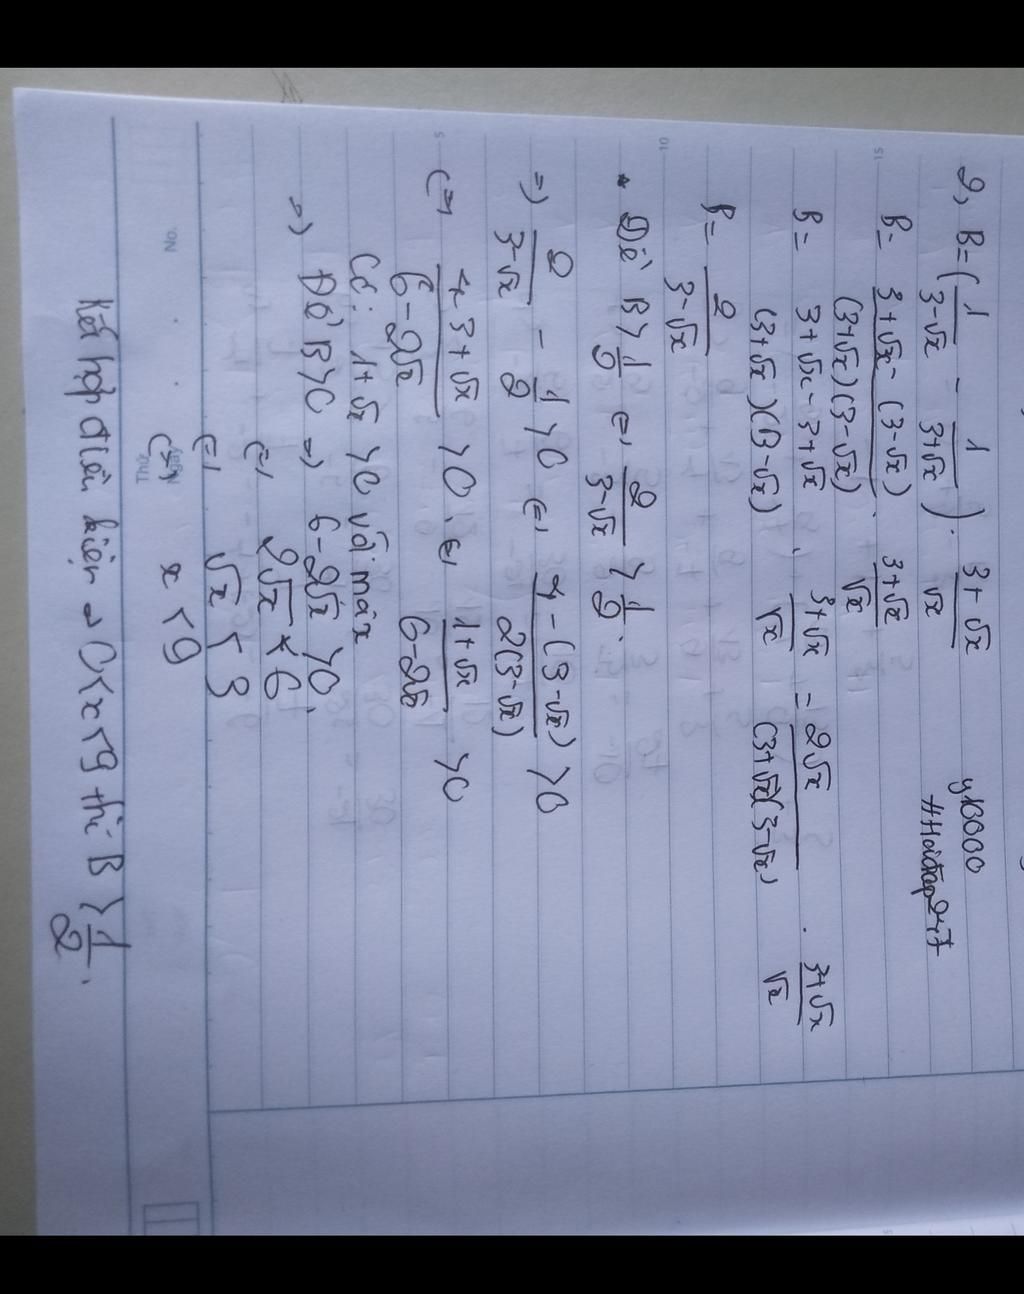 2, B = ( 1/(3-√x) - 1/(3+√x) ) . (3+√x)/√x
y13000
B = (3+√x - (3-√x))/((3+√x)(3-√x)) . (3+√x)/√x
B = (3+√x-3+√x)/((3+√x)(3-√x)) . (3+√x)/√x = 2√x/((3+√x)(3-√x)) . (3+√x)/√x
B = 2/(3-√x)
* Để B > 1/2 (=) 2/(3-√x) > 1/2.
=) 2/(3-√x) - 1/2 > 0 (=) (4-(3-√x))/(2(3-√x)) > 0
(=) (4-3+√x)/(6-2√x) > 0 (=) (1+√x)/(6-2√x) > 0
Có: 1+√x > 0 với mọi x
=) Để B > 0 =) 6-2√x > 0
(=) 2√x < 6
(=) √x < 3
(=) x < 9
Thứ
Ngày
No.
Kết hợp điều kiện → 0 < x < 9 thì B > 1/2.
5
10
15